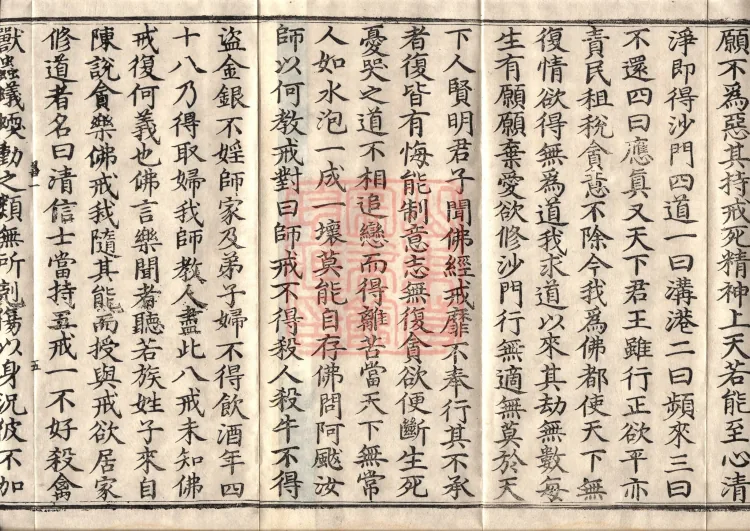 願不為惡其持戒死精神上天若能至心清
淨即得沙門四道一曰溝港二曰頻來三曰
不還四曰應真又天下君王雖行正欲平亦
責民租稅貪意不除今我為佛都使天下無
復情欲得無為道我求道以來其劫無數每
生有願願棄愛欲修沙門行無適無莫於天
下人賢明君子聞佛經戒靡不奉行其不承
者復皆有悔能制意志無復貪欲便斷生死
憂哭之道不相追戀而得離苦當天下無常
人如水泡一成一壞莫能自存佛問阿颰汝
師以何教戒對曰師戒不得殺人殺牛不得
盜金銀不婬師家及弟子婦不得飲酒年四
十八乃得取婦我師教人盡此八戒未知佛
戒復何義也佛言樂聞者聽若族姓子來自
陳說貪樂佛戒我隨其能而授與戒欲居家
修道者名曰清信士當持五戒一不好殺禽
獸蟲蟻蝡動之類無所剋傷以身況彼不加
五